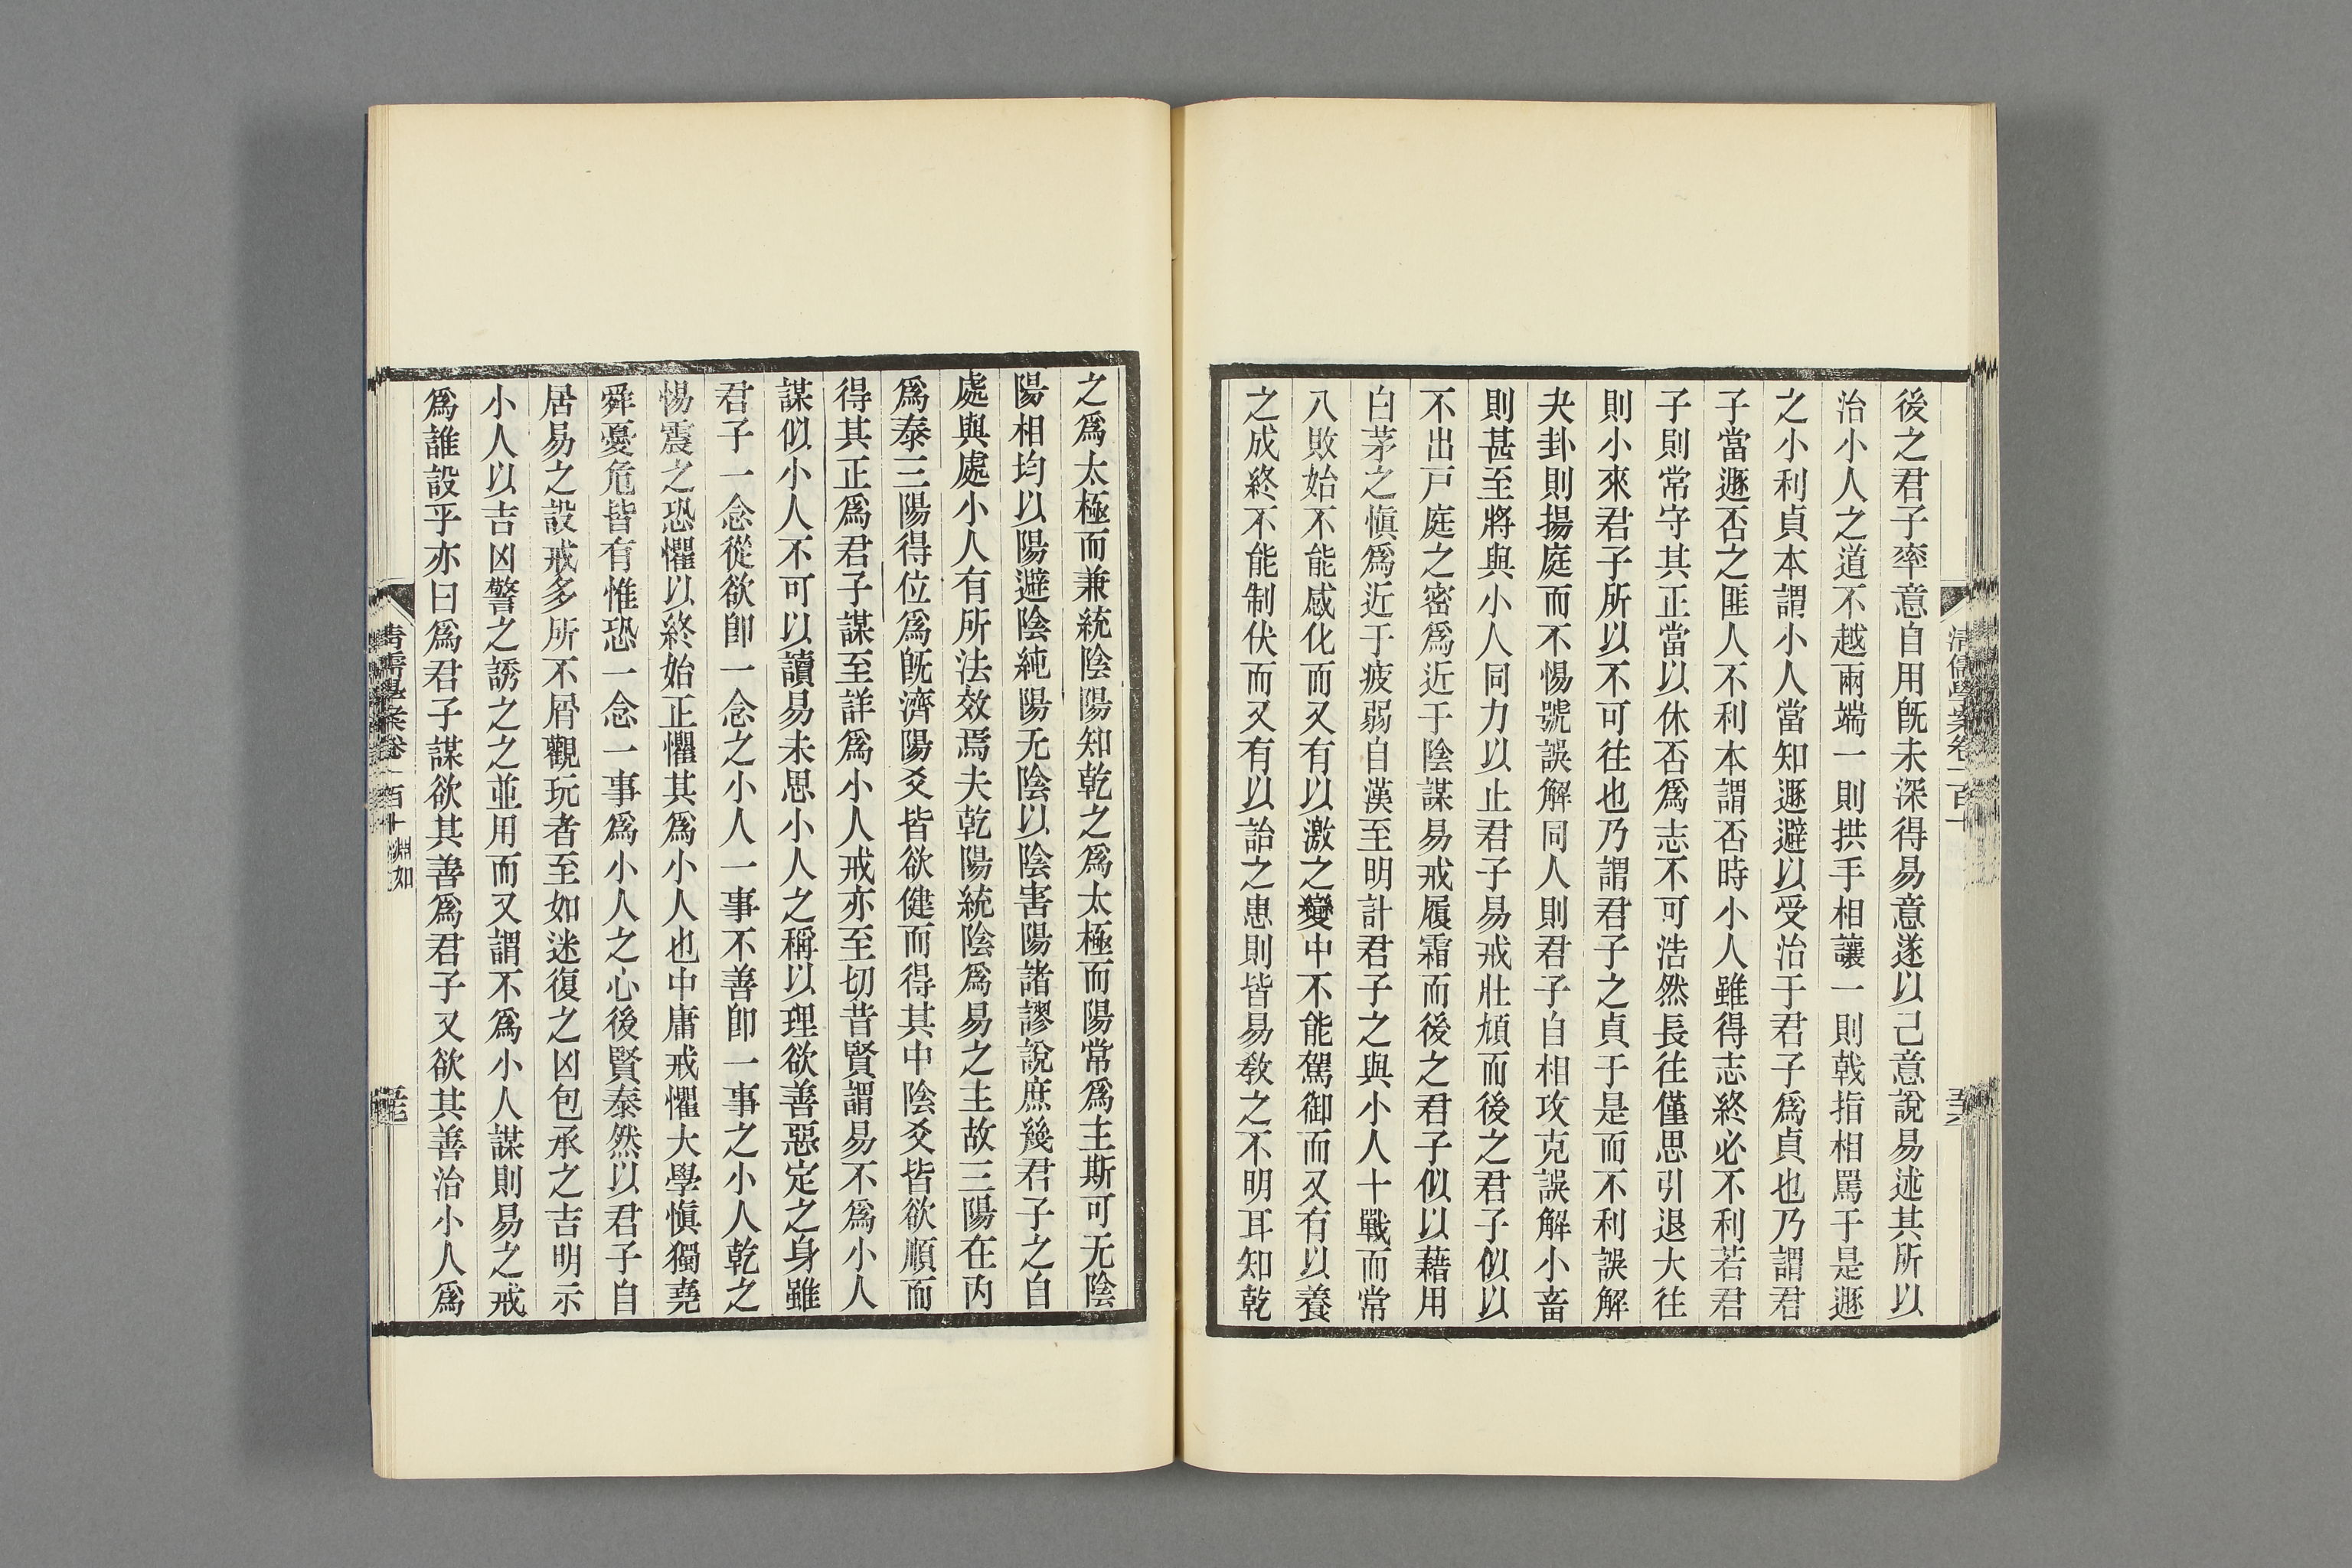 後之君子率意自用旣未深得易意遂以己意說易述其所以
治小人之道不越兩端一則拱手相讓一則戟指相罵于是遯
之小利貞本謂小人當知遯避以受治于君子爲貞也乃謂君
子當遯否之匪人不利本謂否時小人雖得志終必不利若君
子則常守其正當以休否爲志不可浩然長往僅思引退大往
則小來君子所以不可往也乃謂君子之貞于是而不利誤解
夬卦則揚庭而不惕號誤解同人則君子自相攻克誤解小畜
則甚至將與小人同力以止君子易戒壯頄而後之君子似以
不出戸庭之密爲近于陰謀易戒履霜而後之君子似以藉用
白茅之愼爲近于疲弱自漢至明計君子之與小人十戰而常
八敗始不能感化而又有以激之變中不能駕御而又有以養
之成終不能制伏而又有以詒之患則皆易敎之不明耳知乾
清儒學案卷一百十
之爲太極而兼統陰陽知乾之爲太極而陽常爲主斯可无陰
陽相均以陽避陰純陽无陰以陰害陽諸謬說庶幾君子之自
處與處小人有所法效焉夫乾陽統陰爲易之主故三陽在內
爲泰三陽得位爲旣濟陽爻皆欲健而得其中陰爻皆欲順而
得其正爲君子謀至詳爲小人戒亦至切昔賢謂易不爲小人
謀似小人不可以讀易未思小人之稱以理欲善惡定之身雖
君子一念從欲卽一念之小人一事不善卽一事之小人乾之
惕震之恐懼以終始正懼其爲小人也中庸戒懼大學愼獨堯
舜憂危皆有惟恐一念一事爲小人之心後賢泰然以君子自
居易之設戒多所不屑觀玩者至如迷復之凶包承之吉明示
小人以吉凶警之誘之之並用而又謂不爲小人謀則易之戒
爲誰設乎亦曰爲君子謀欲其善爲君子又欲其善治小人爲
清儒學案卷一百十 淵如